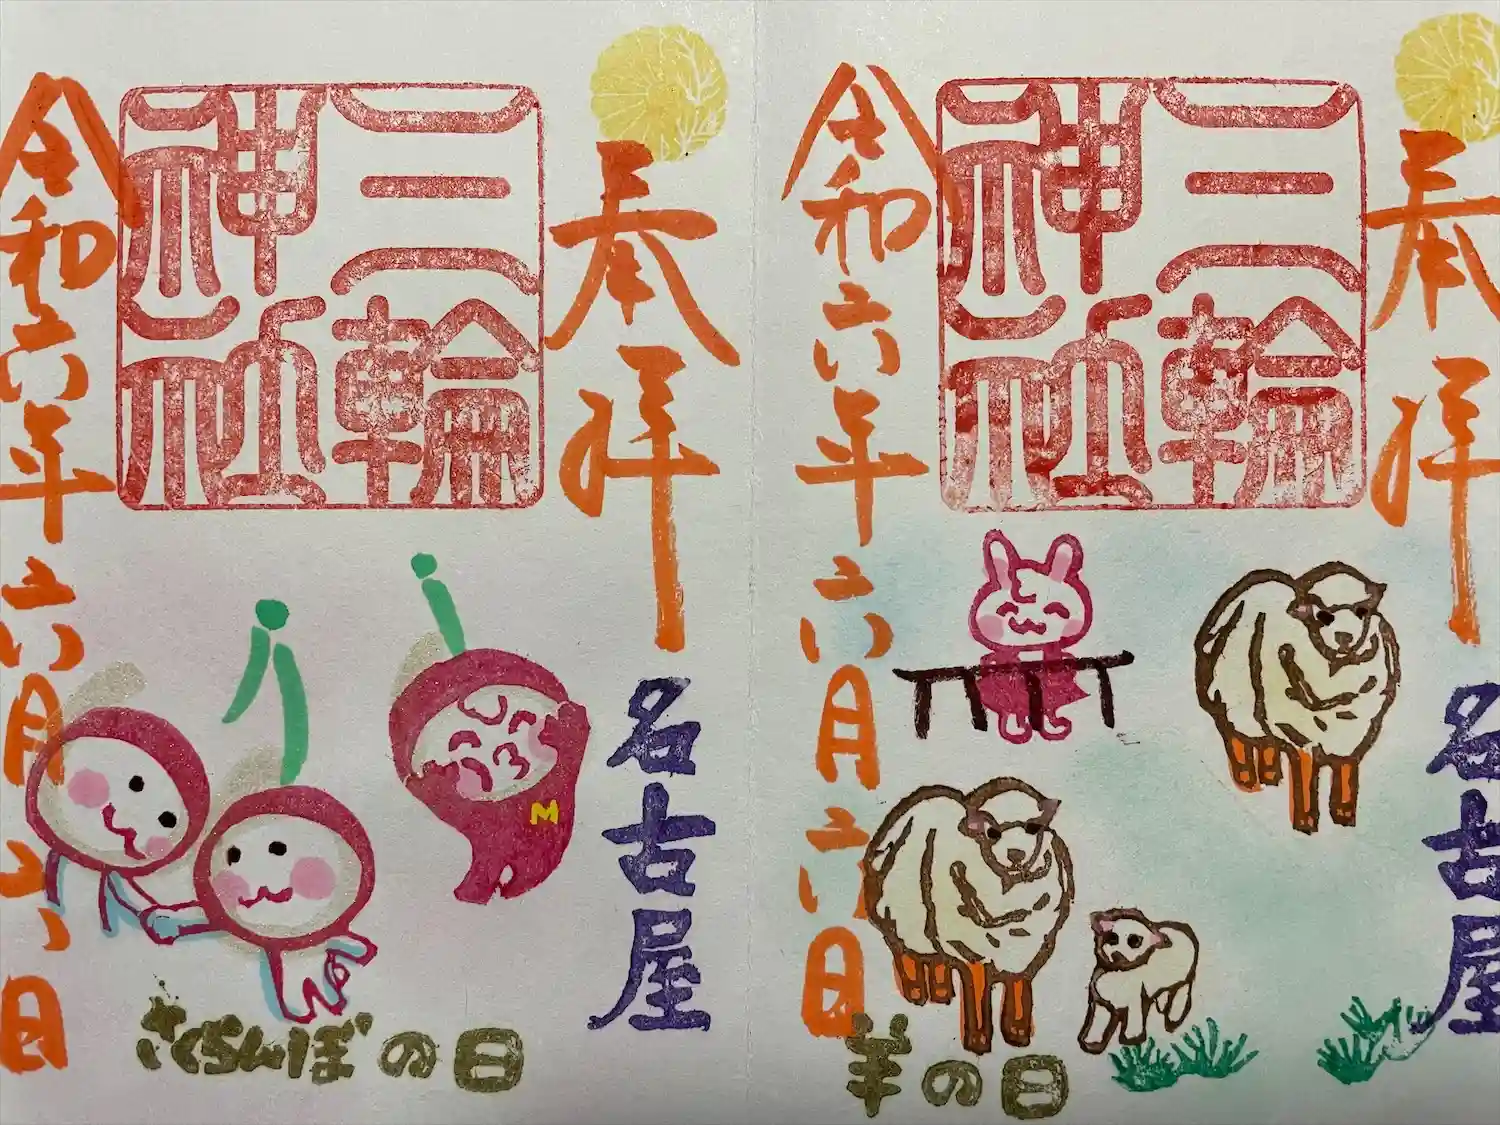 奉拝
名古屋
三輪
神社
令和六年六月六日
M
さくらんぼの日
奉拝
名古屋
三輪
神社
令和六年六月六日
羊の日